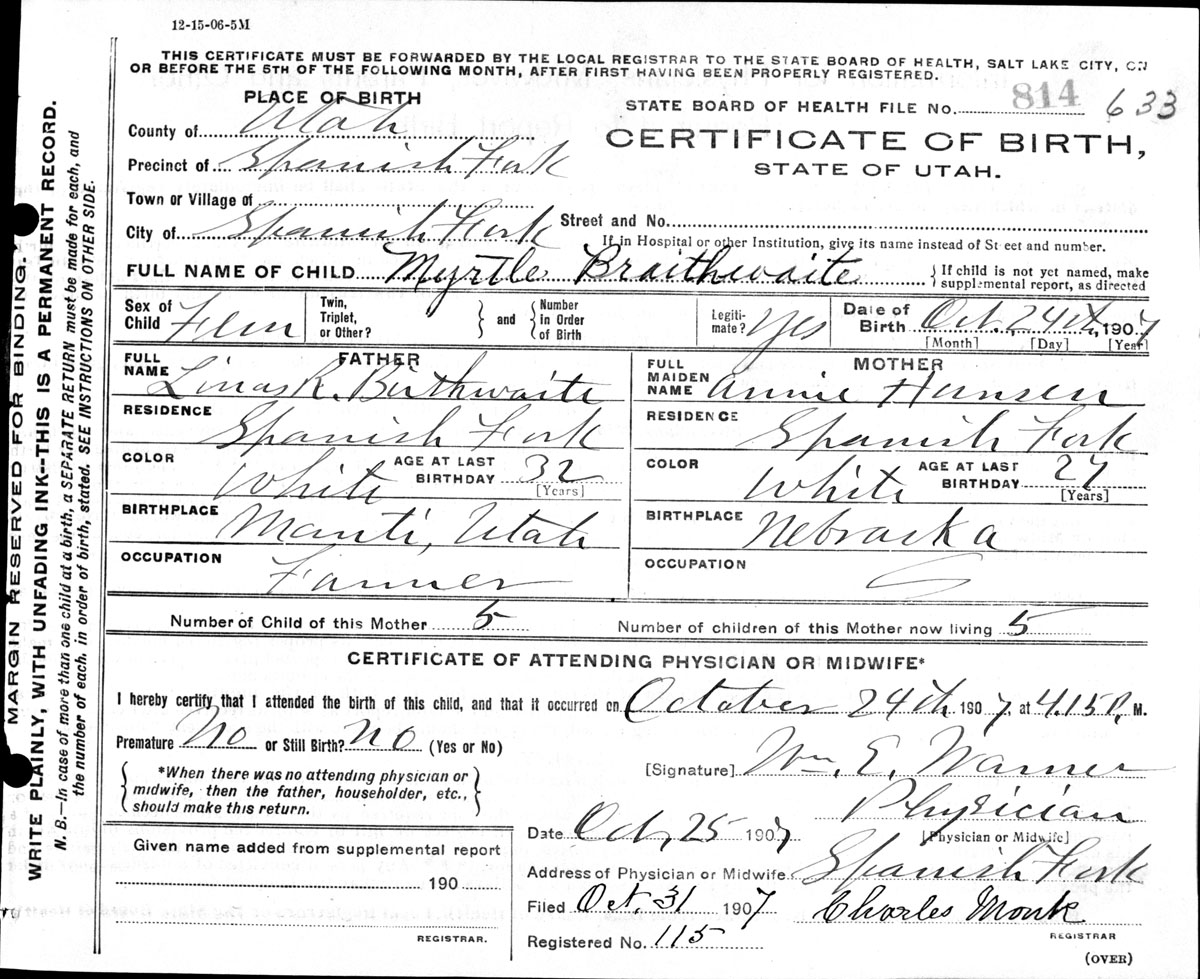 12-15-06-5M
THIS CERTIFICATE MUST BE FORWARDED BY THE LOCAL REGISTRAR TO THE STATE BOARD OF HEALTH, SALT LAKE CITY, ON
OR BEFORE THE 5TH OF THE FOLLOWING MONTH, AFTER FIRST HAVING BEEN PROPERLY REGISTERED.
PLACE OF BIRTH
STATE BOARD OF HEALTH FILE No. 814 633
County of Utah
CERTIFICATE OF BIRTH,
STATE OF UTAH.
Precinct of Spanish Fork
Town or Village of
City of Spanish Fork Street and No.
If in Hospital or other Institution, give its name instead of Street and number.
FULL NAME OF CHILD Myrtle Braithwaite } If child is not yet named, make supplemental report, as directed
Sex of Child Fem Twin, Triplet, or Other? } and { Number in Order of Birth Legiti- mate? Yes Date of Birth Oct. 24th, 1907
[Month] [Day] [Year]
FATHER
FULL NAME Linas R. Birthwaite
RESIDENCE Spanish Fork
COLOR White AGE AT LAST BIRTHDAY 32
[Years]
BIRTHPLACE Manti, Utah
OCCUPATION Farmer
MOTHER
FULL MAIDEN NAME Annie Hansen
RESIDENCE Spanish Fork
COLOR White AGE AT LAST BIRTHDAY 27
[Years]
BIRTHPLACE Nebraska
OCCUPATION
Number of Child of this Mother 5 Number of children of this Mother now living 5
CERTIFICATE OF ATTENDING PHYSICIAN OR MIDWIFE*
I hereby certify that I attended the birth of this child, and that it occurred on October 24th 1907, at 4.15 P. M.
Premature No or Still Birth? No (Yes or No)
{ *When there was no attending physician or midwife, then the father, householder, etc., should make this return. }
[Signature] Wm. E. Warner
Physician
[Physician or Midwife]
Date Oct, 25 1907
Address of Physician or Midwife Spanish Fork
Filed Oct 31 1907 Charles Monk
REGISTRAR
Registered No. 115
(OVER)
Given name added from supplemental report
190
REGISTRAR.
MARGIN RESERVED FOR BINDING.
WRITE PLAINLY, WITH UNFADING INK--THIS IS A PERMANENT RECORD.
N. B.—In case of more than one child at a birth, a SEPARATE RETURN must be made for each, and
the number of each, in order of birth, stated. SEE INSTRUCTIONS ON OTHER SIDE.